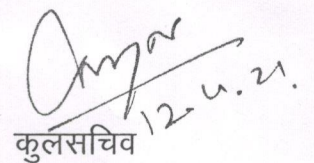 12.4.21.
कुलसचिव